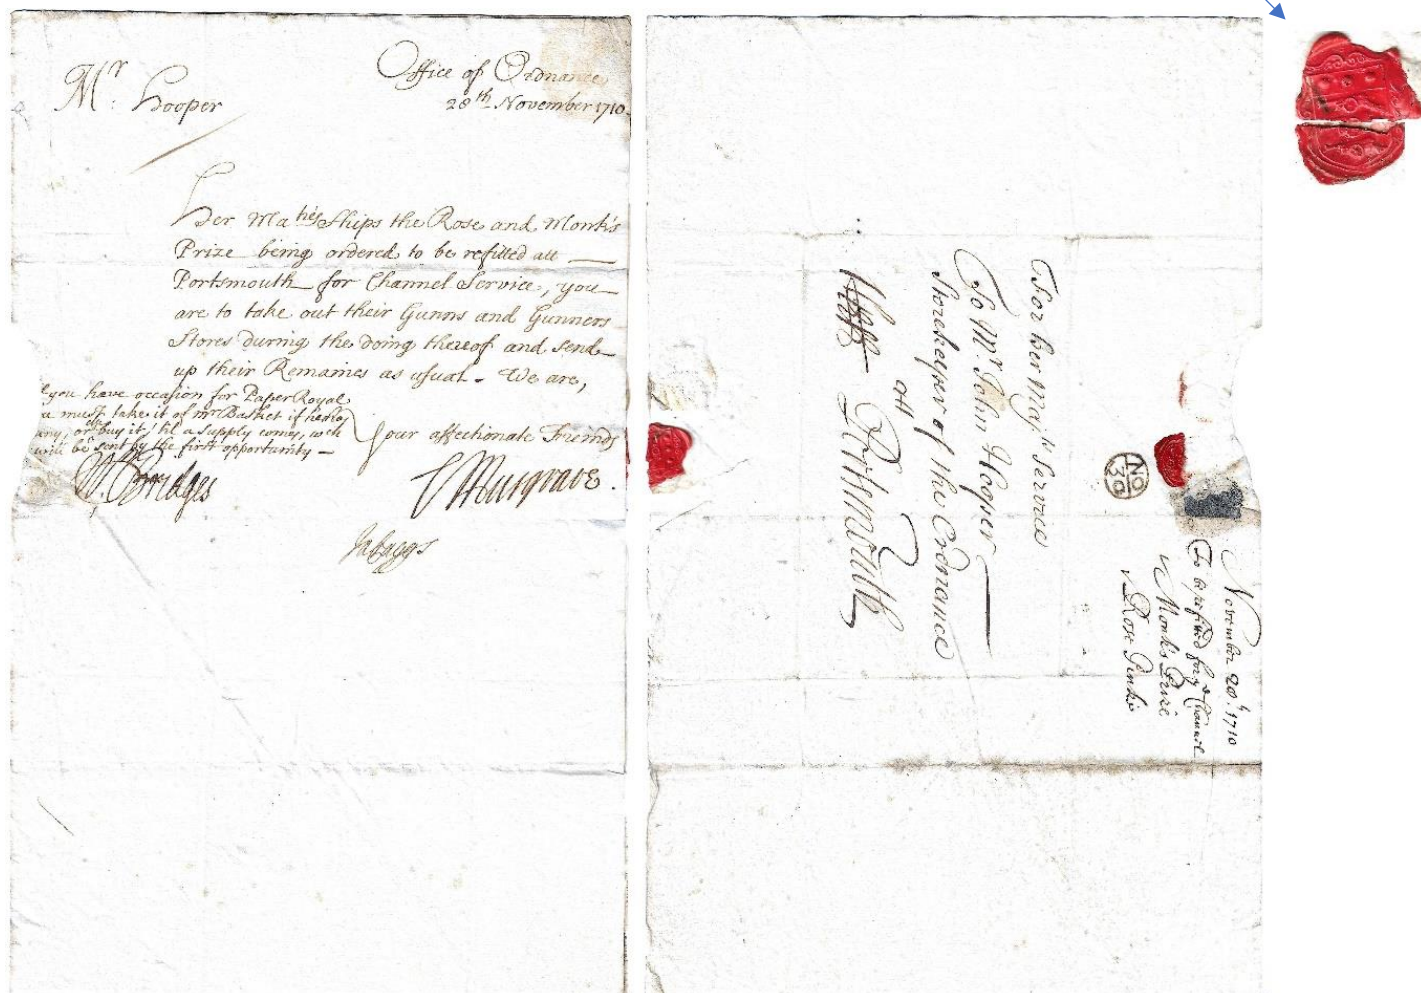 Mr: Hooper
Office of Ordnance
28th November 1710.
Her Maties Ships the Rose and Monk's
Prize being ordered to be refitted att
Portsmouth for Channel Service, you
are to take out their Gunns and Gunners
Stores during the doing thereof and send
up their Remaines as usual. We are,
you have occasion for Paper Royal
must take it of mr Basket if he has
any, or buy it, til a supply comes, wch
will be sent by the first opportunity
Your affectionate Freinds
Bridges
C Musgrave.
For her Majts Service
To Mr John Hooper
Storekeeper of the Ordnance
att
Portsmouth
NO
30
November 28th. 1710
To be refitted for ye Channel
Monk's Prize
Rose